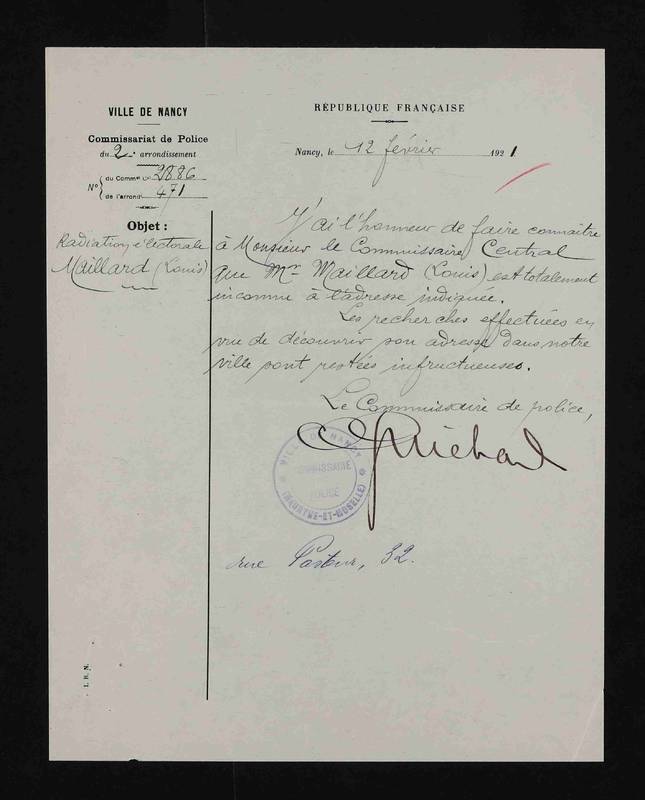 VILLE DE NANCY
Commissariat de Police
du 2e arrondissement
N° du Comm. 2886
de l'arrond. 471
Objet :
Radiation électorale
Maillard (Louis)
RÉPUBLIQUE FRANÇAISE
Nancy, le 12 février 1921
J'ai l'honneur de faire connaître
à Monsieur le Commissaire Central
que Mr Maillard (Louis) est totalement
inconnu à l'adresse indiquée.
Les recherches effectuées en
vue de découvrir son adresse dans notre
ville sont restées infructueuses.
Le Commissaire de police,
VILLE DE NANCY
COMMISSAIRE
POLICE
(MEURTHE-ET-MOSELLE)
rue Pasteur, 32.
I. B. N.